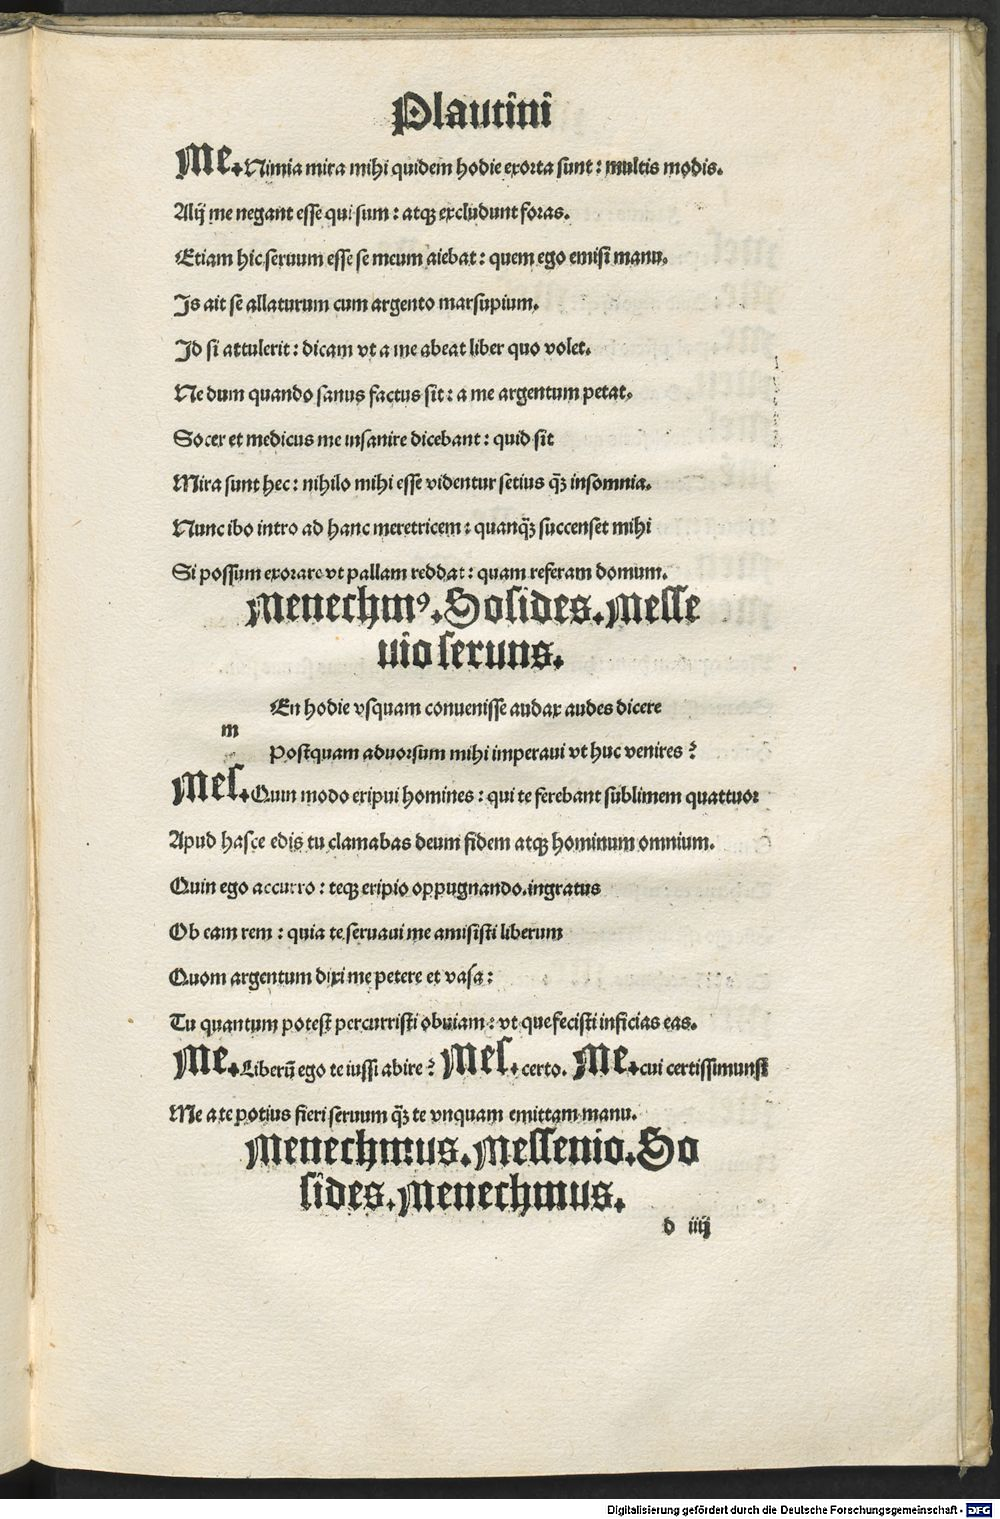 Plautini
Me. Nimia mira mihi quidem hodie exorta sunt : multis modis.
Alij me negant esse qui sum : atqꝫ excludunt foras.
Etiam hic seruum esse se meum aiebat : quem ego emisi manu.
Is ait se allaturum cum argento marsupium.
Id si attulerit : dicam vt a me abeat liber quo volet.
Ne dum quando sanus factus sit : a me argentum petat.
Socer et medicus me insanire dicebant : quid sit
Mira sunt hec : nihilo mihi esse videntur setius qꝫ̄ insomnia.
Nunc ibo intro ad hanc meretricem : quanqꝫ̄ succenset mihi
Si possum exorare vt pallam reddat : quam referam domum.
Menechmꝰ. Sosides. Messe
nio seruus.
En hodie vsquam conuenisse audax audes dicere
m
Postquam aduorsum mihi imperaui vt huc venires ?
Mes. Quin modo eripui homines : qui te ferebant sublimem quattuor
Apud hasce edis tu clamabas deum fidem atqꝫ hominum omnium.
Quin ego accurro : teqꝫ eripio oppugnando. ingratus
Ob eam rem : quia te seruaui me amisisti liberum
Quom argentum dixi me petere et vasa :
Tu quantum potest percurristi obuiam : vt que fecisti inficias eas.
Me. Liberū ego te iussi abire ? Mes. certo. Me. cui certissimunst
Me a te potius fieri seruum qꝫ̄ te vnquam emittam manu.
Menechmus. Messenio. So
sides. Menechmus.
d iiij
Digitalisierung gefördert durch die Deutsche Forschungsgemeinschaft - DFG